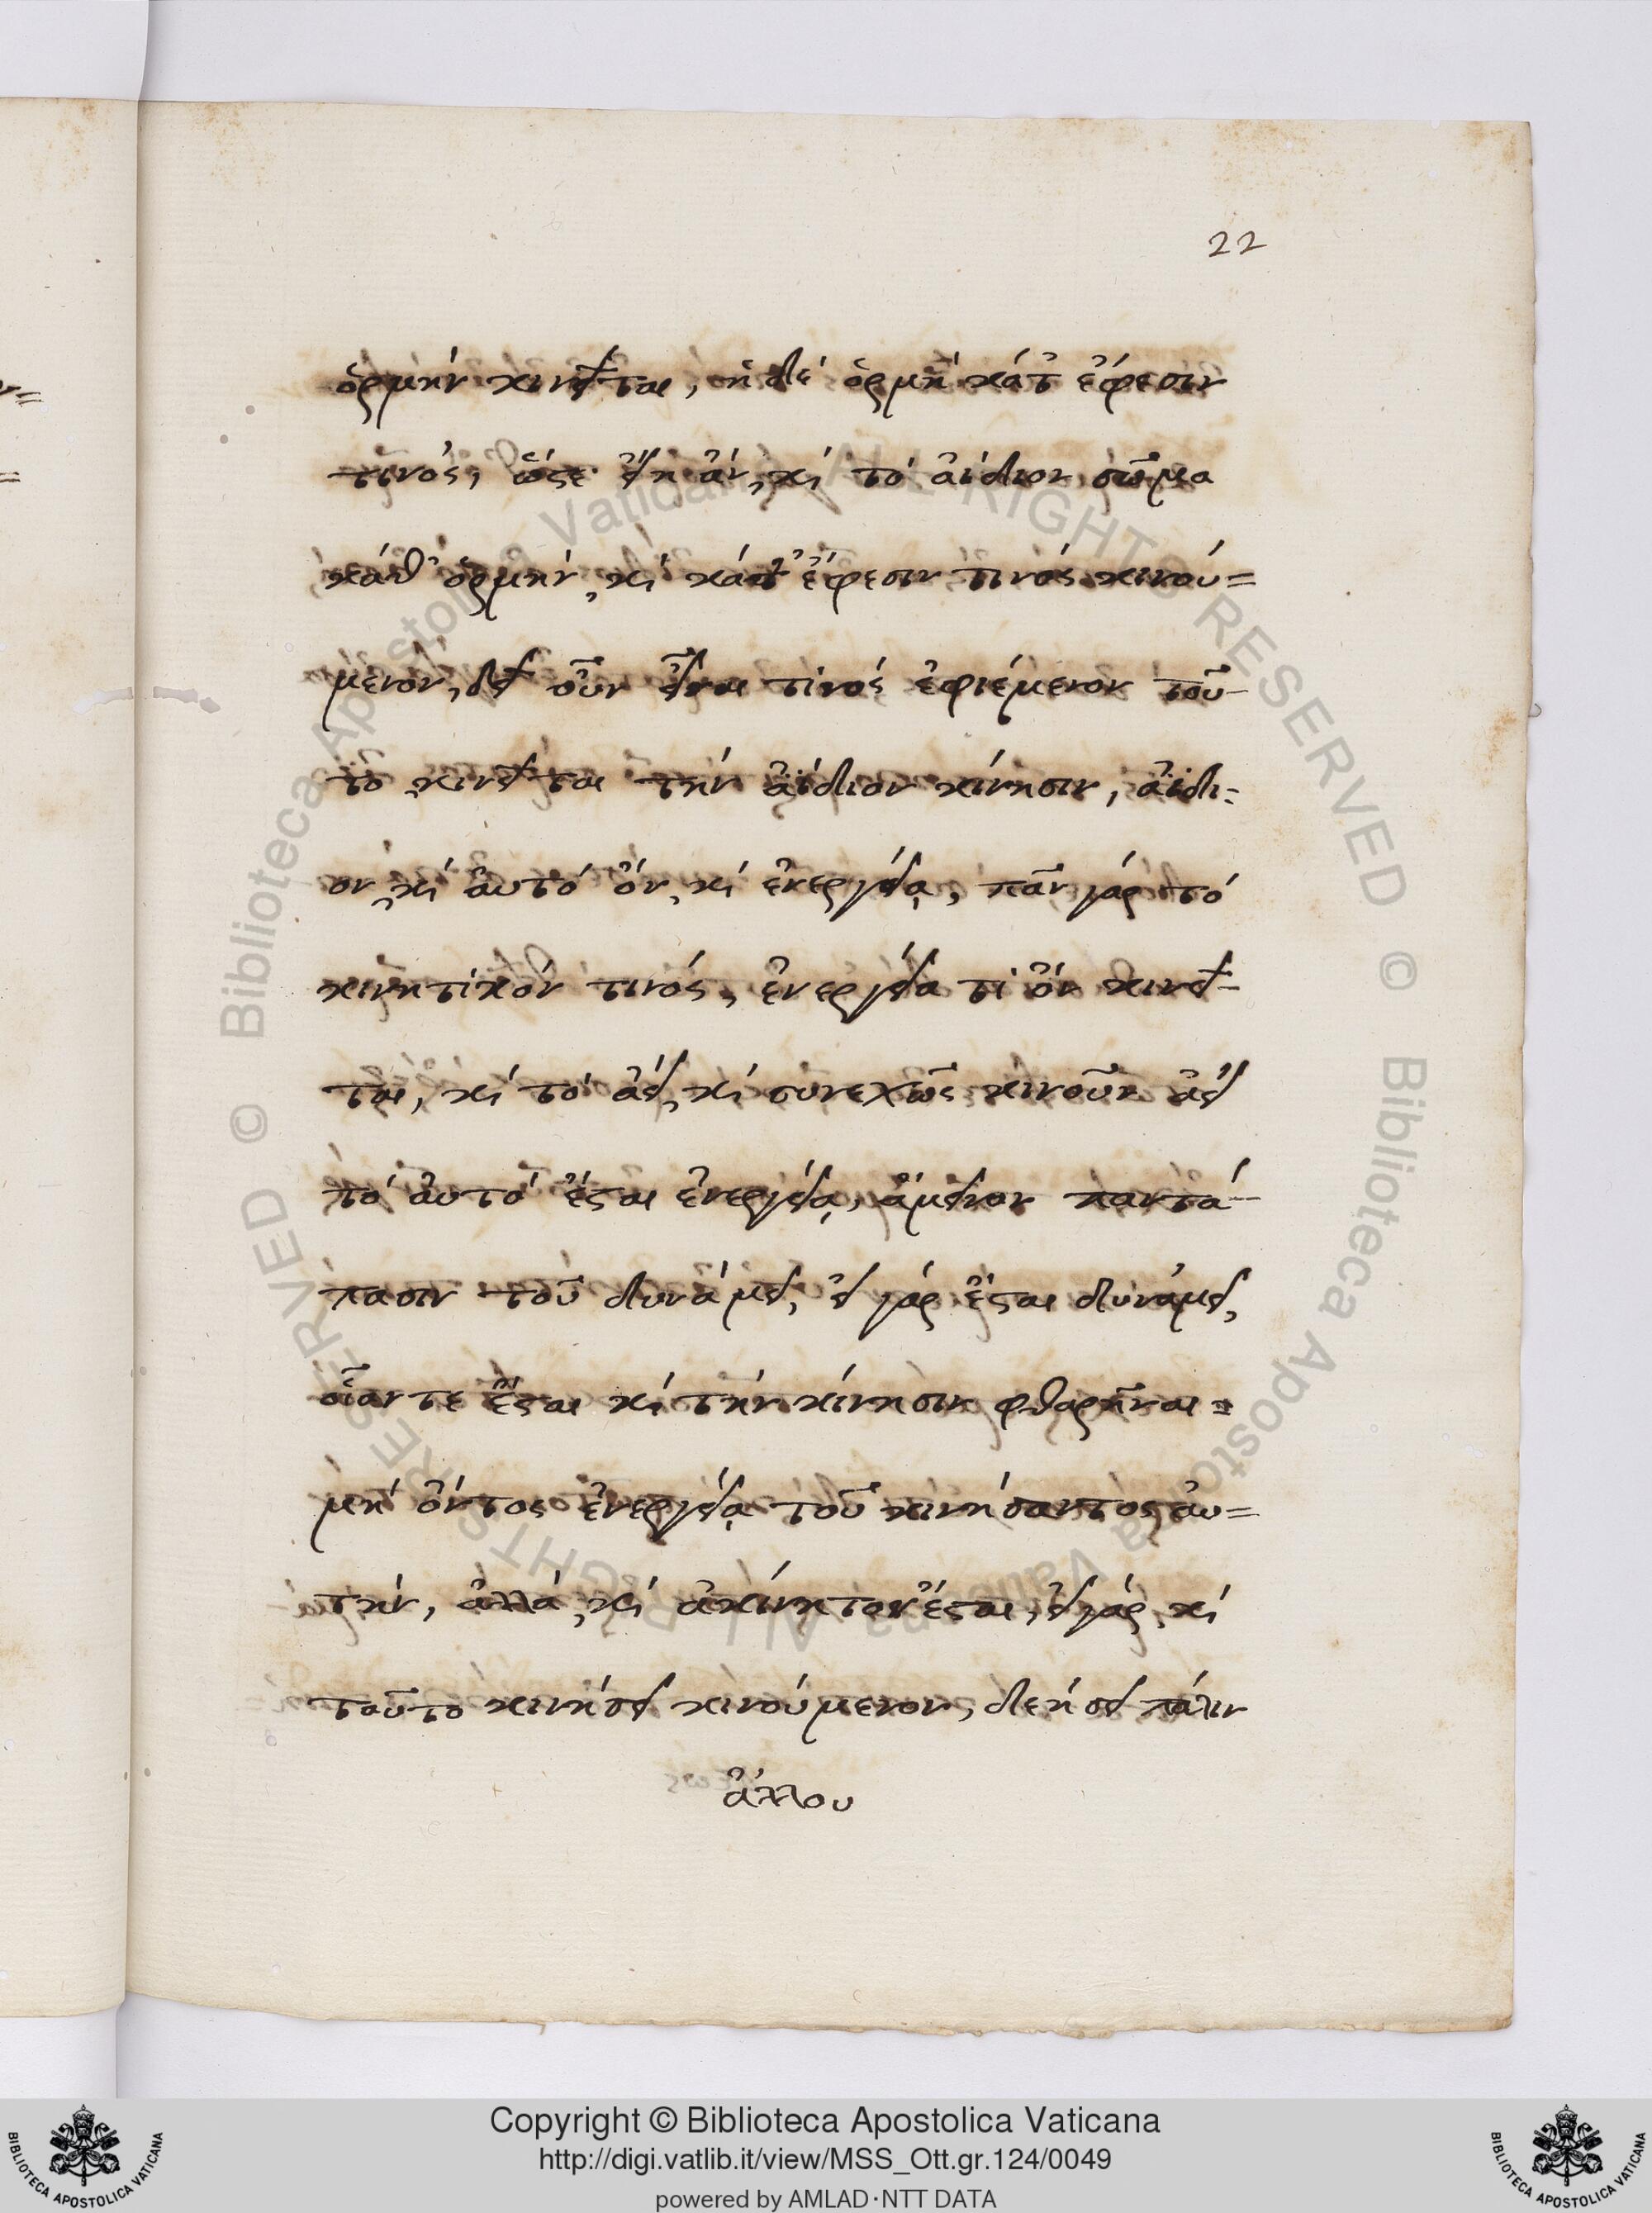 22
ὁρμὴν κινεῖται, ἡ δὲ ὁρμὴ κάτ ἔφεσιν
τινὸς, ὥστε εἴη ἂν, καὶ τὸ ἀΐδιον σῶμα
κάθ' ὁρμὴν, καὶ κάτ' ἔφεσιν τινὸς κινού=
μενον, δεῖ οὖν εἶναι τινὸς ἐφιέμενον τοῦ-
το κινεῖται τὴν ἀΐδιον κίνησιν, ἀΐδι=
ον, καὶ ἀυτὸ ὂν, καὶ ἐνεργείᾳ, πᾶν γάρ τὸ
κινητικὸν τινὸς, ἐνεργείᾳ τὶ ὂν κινεῖ-
ται, καὶ τὸ ἀεὶ, καὶ συνεχῶς κινοῦν ἀεὶ
τὸ ἀυτὸ ἔσται ἐνεργείᾳ, ἄμεινον παντά-
πασιν τοῦ δυνάμει, εἰ γάρ ἔσται δυνάμει,
οἷαν τε ἔσται καὶ τὴν κίνησιν φθαρῆναι =
μὴ ὄντος ἐνεργείᾳ τοῦ κινήσαντος ἀυ=
τὴν, ἀλλὰ, καὶ ἀκίνητον ἔσται, εἰ γάρ, καὶ
τοῦτο κινήσει κινούμενον, δεήσει πάλιν
ἄλλου
Copyright © Biblioteca Apostolica Vaticana
http://digi.vatlib.it/view/MSS_Ott.gr.124/0049
powered by AMLAD·NTT DATA